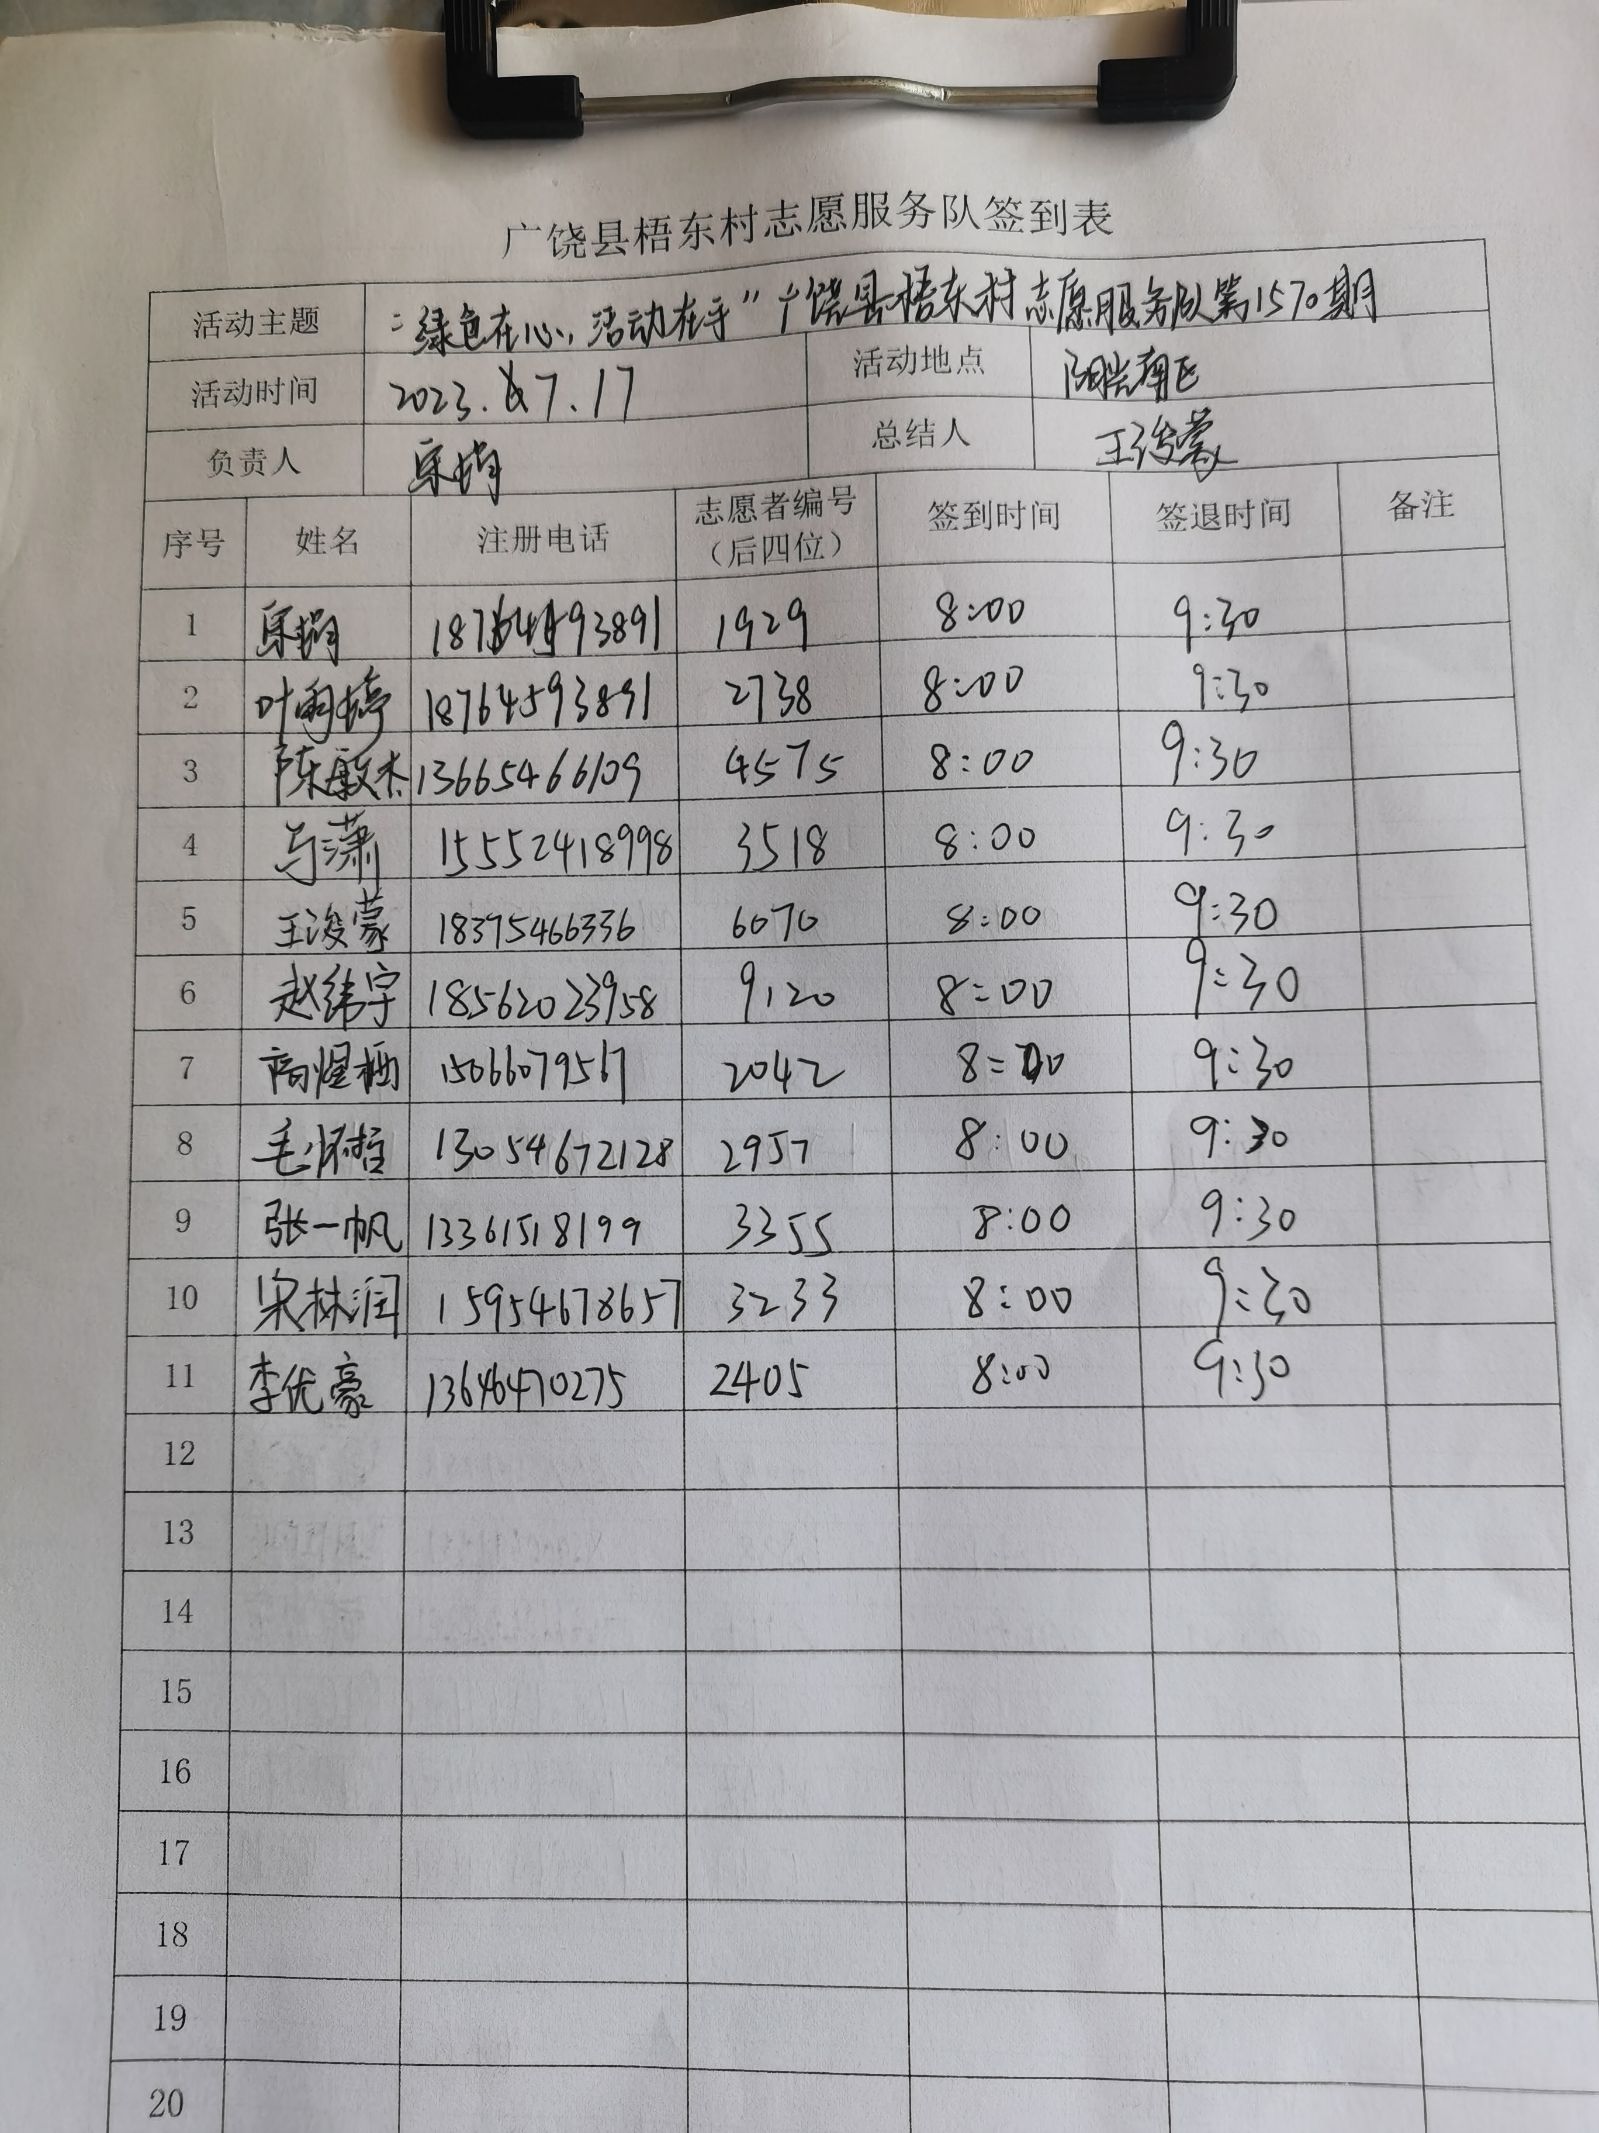 广饶县梧东村志愿服务队签到表
活动主题 "绿色在心,活动在手"广饶县梧东村志愿服务队第1570期
活动时间 2023.7.17 活动地点 阳光南区
负责人 总结人 王浚蒙
序号 姓名 注册电话 志愿者编号(后四位) 签到时间 签退时间 备注
1 1929 8:00 9:30
2 叶雨婷 18764593891 2738 8:00 9:30
3 陈敏杰 13665466109 4575 8:00 9:30
4 马潇 15552418998 3518 8:00 9:30
5 王浚蒙 18375466336 6070 8:00 9:30
6 赵纬宇 18562023958 9120 8:00 9:30
7 15066079567 2042 8:00 9:30
8 毛怀哲 13054672128 2957 8:00 9:30
9 张一帆 13361518199 3355 8:00 9:30
10 宋林润 15954678657 3233 8:00 9:30
11 李优豪 13646470275 2405 8:00 9:30
12
13
14
15
16
17
18
19
20